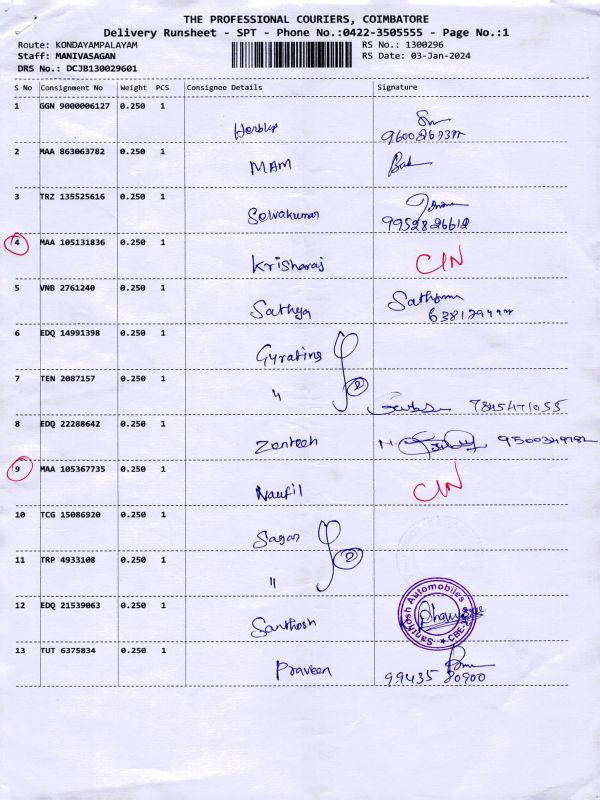 THE PROFESSIONAL COURIERS, COIMBATORE
Delivery Runsheet - SPT - Phone No.:0422-3505555 - Page No.:1
Route: KONDAYAMPALAYAM RS No.: 1300296
Staff: MANIVASAGAN RS Date: 03-Jan-2024
DRS No.: DCJB130029601
S No Consignment No Weight PCS Consignee Details Signature
1 GGN 9000006127 0.250 1
2 MAA 863063782 0.250 1 MAM
3 TRZ 135525616 0.250 1 Selvakumar
9952826612
4 MAA 105131836 0.250 1 Krisharaj CIN
5 VNB 2761240 0.250 1 Sathya
6 EDQ 14991398 0.250 1 Gyrating
7 TEN 2087157 0.250 1 " 2 7845471055
8 EDQ 22288642 0.250 1 Zenteeh
9 MAA 105367735 0.250 1 Naufil CIN
10 TCG 15086920 0.250 1 Sagar
11 TRP 4933108 0.250 1 " 2
12 EDQ 21539063 0.250 1 Santhosh
Santhosh Automobiles
13 TUT 6375834 0.250 1 Praveen
99435 80900